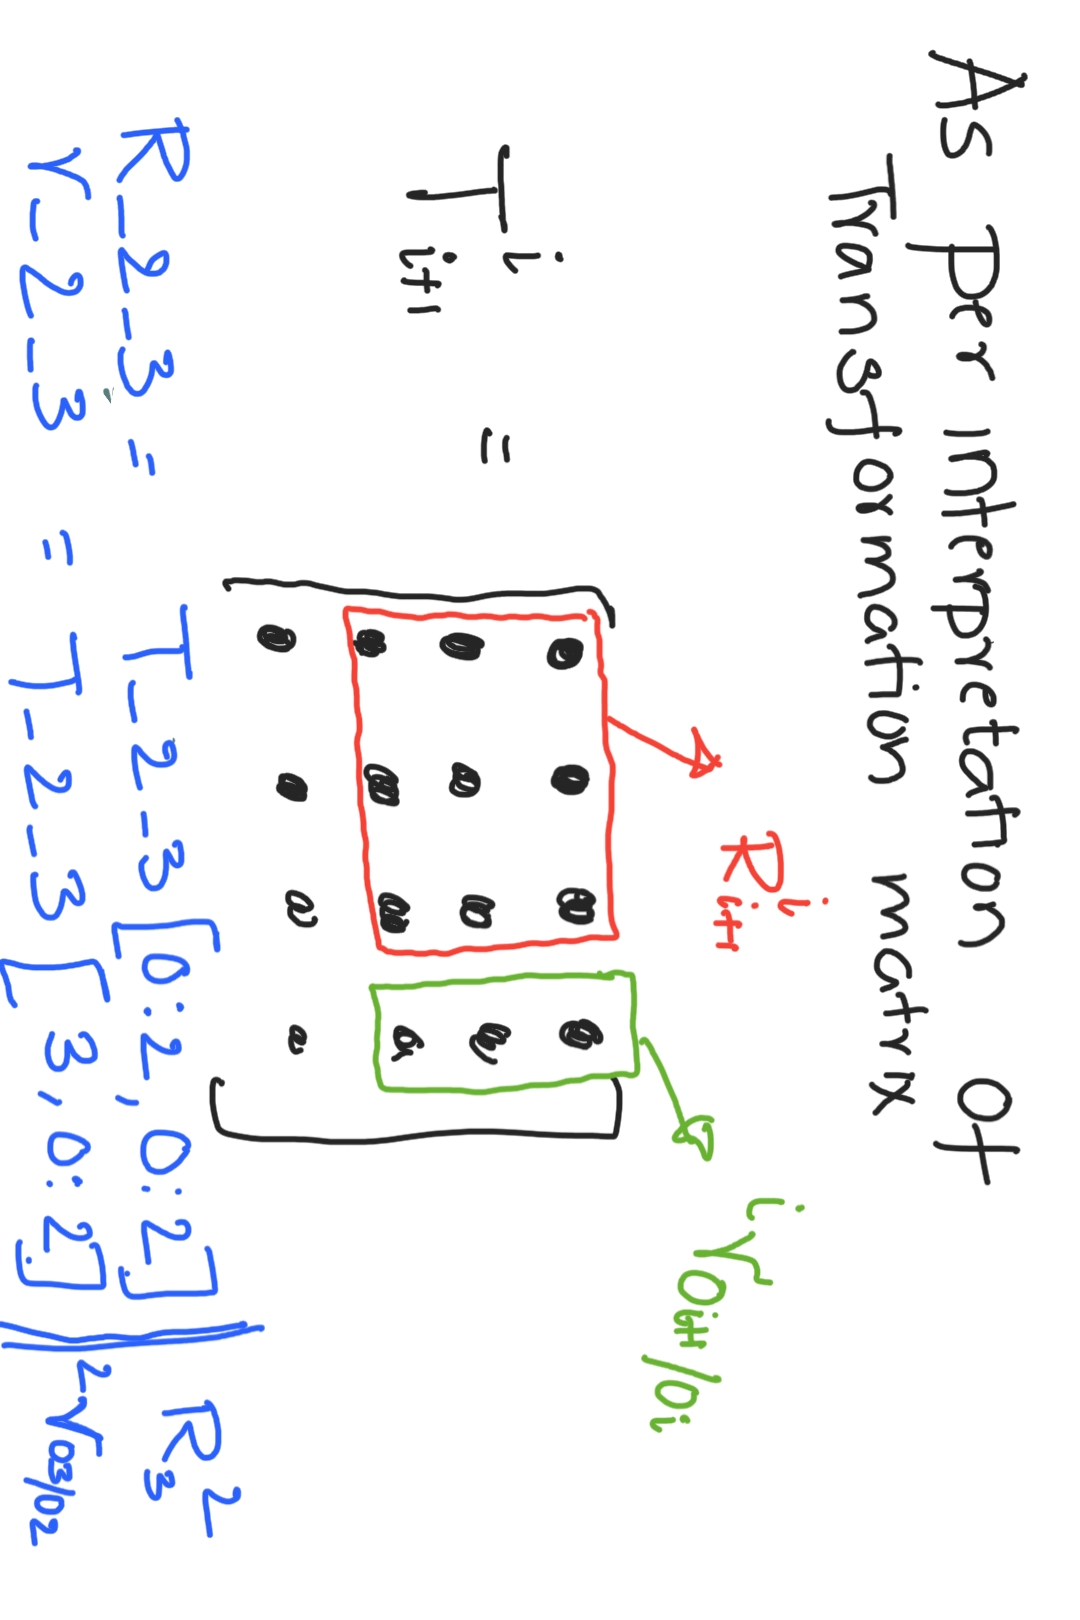 As per interpretation Of
Transformation matrix
R^i_{i+1}
^i r_{O_{i+1}/O_i}
T^i_{i+1} =
R_2_3 = T_2_3 [0:2, 0:2] R^2_3
r_2_3 = T_2_3 [3, 0:2] ^2 r_{O3/O2}